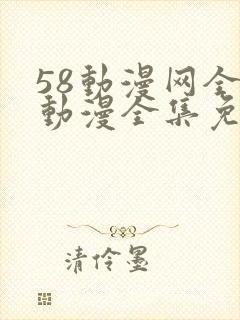 58動漫网全
動漫全集免
清伶墨